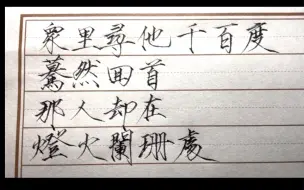 眾里尋他千百度
驀然回首
那人却在
燈火闌珊處